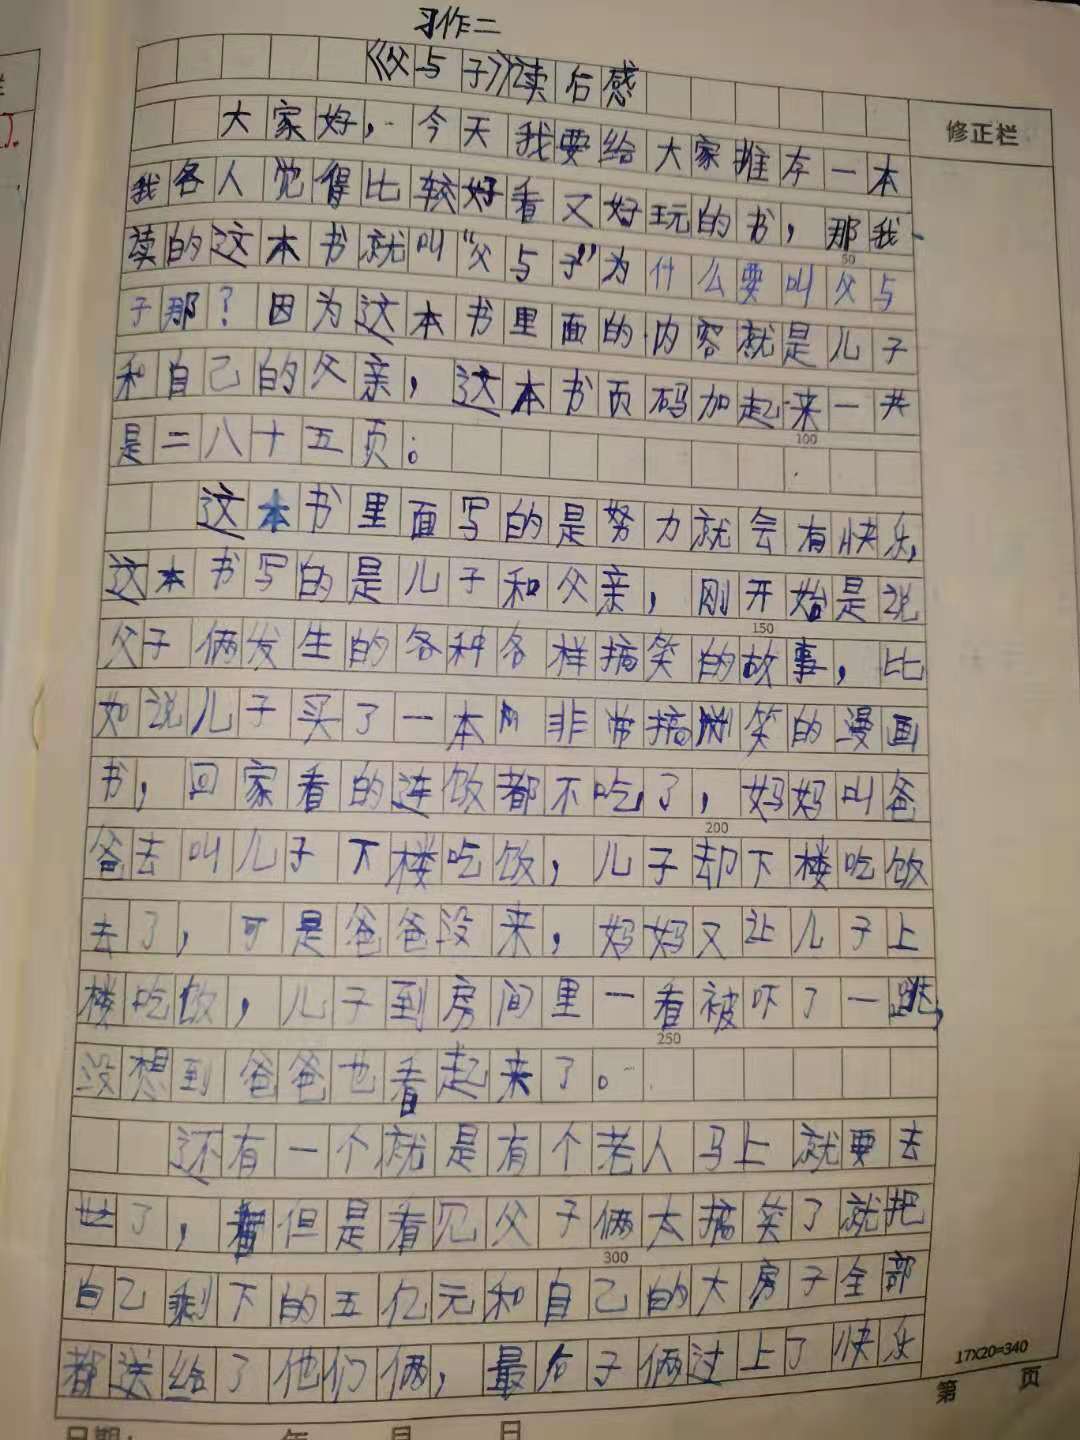 习作二
《父与子》读后感
大家好，今天我要给大家推存一本
我各人觉得比较好看又好玩的书，那我
读的这本书就叫“父与子”为什么要叫父与
50
子那？因为这本书里面的内容就是儿子
和自己的父亲，这本书页码加起来一共
100
是二八十五页。
这本书里面写的是努力就会有快乐，
这本书写的是儿子和父亲，刚开始是说
150
父子俩发生的各种各样搞笑的故事，比
如说儿子买了一本非常搞笑的漫画
书，回家看的连饭都不吃了，妈妈叫爸
200
爸去叫儿子下楼吃饭，儿子却下楼吃饭
去了，可是爸爸没来，妈妈又让儿子上
楼吃饭，儿子到房间里一看被吓了一跳，
250
没想到爸爸也看起来了。
还有一个就是有个老人马上就要去
世了，但是看见父子俩太搞笑了就把
300
自己剩下的五亿元和自己的大房子全部
都送给了他们俩，最后子俩过上了快乐
修正栏
17X20=340
第 页
日期： 年 月 日